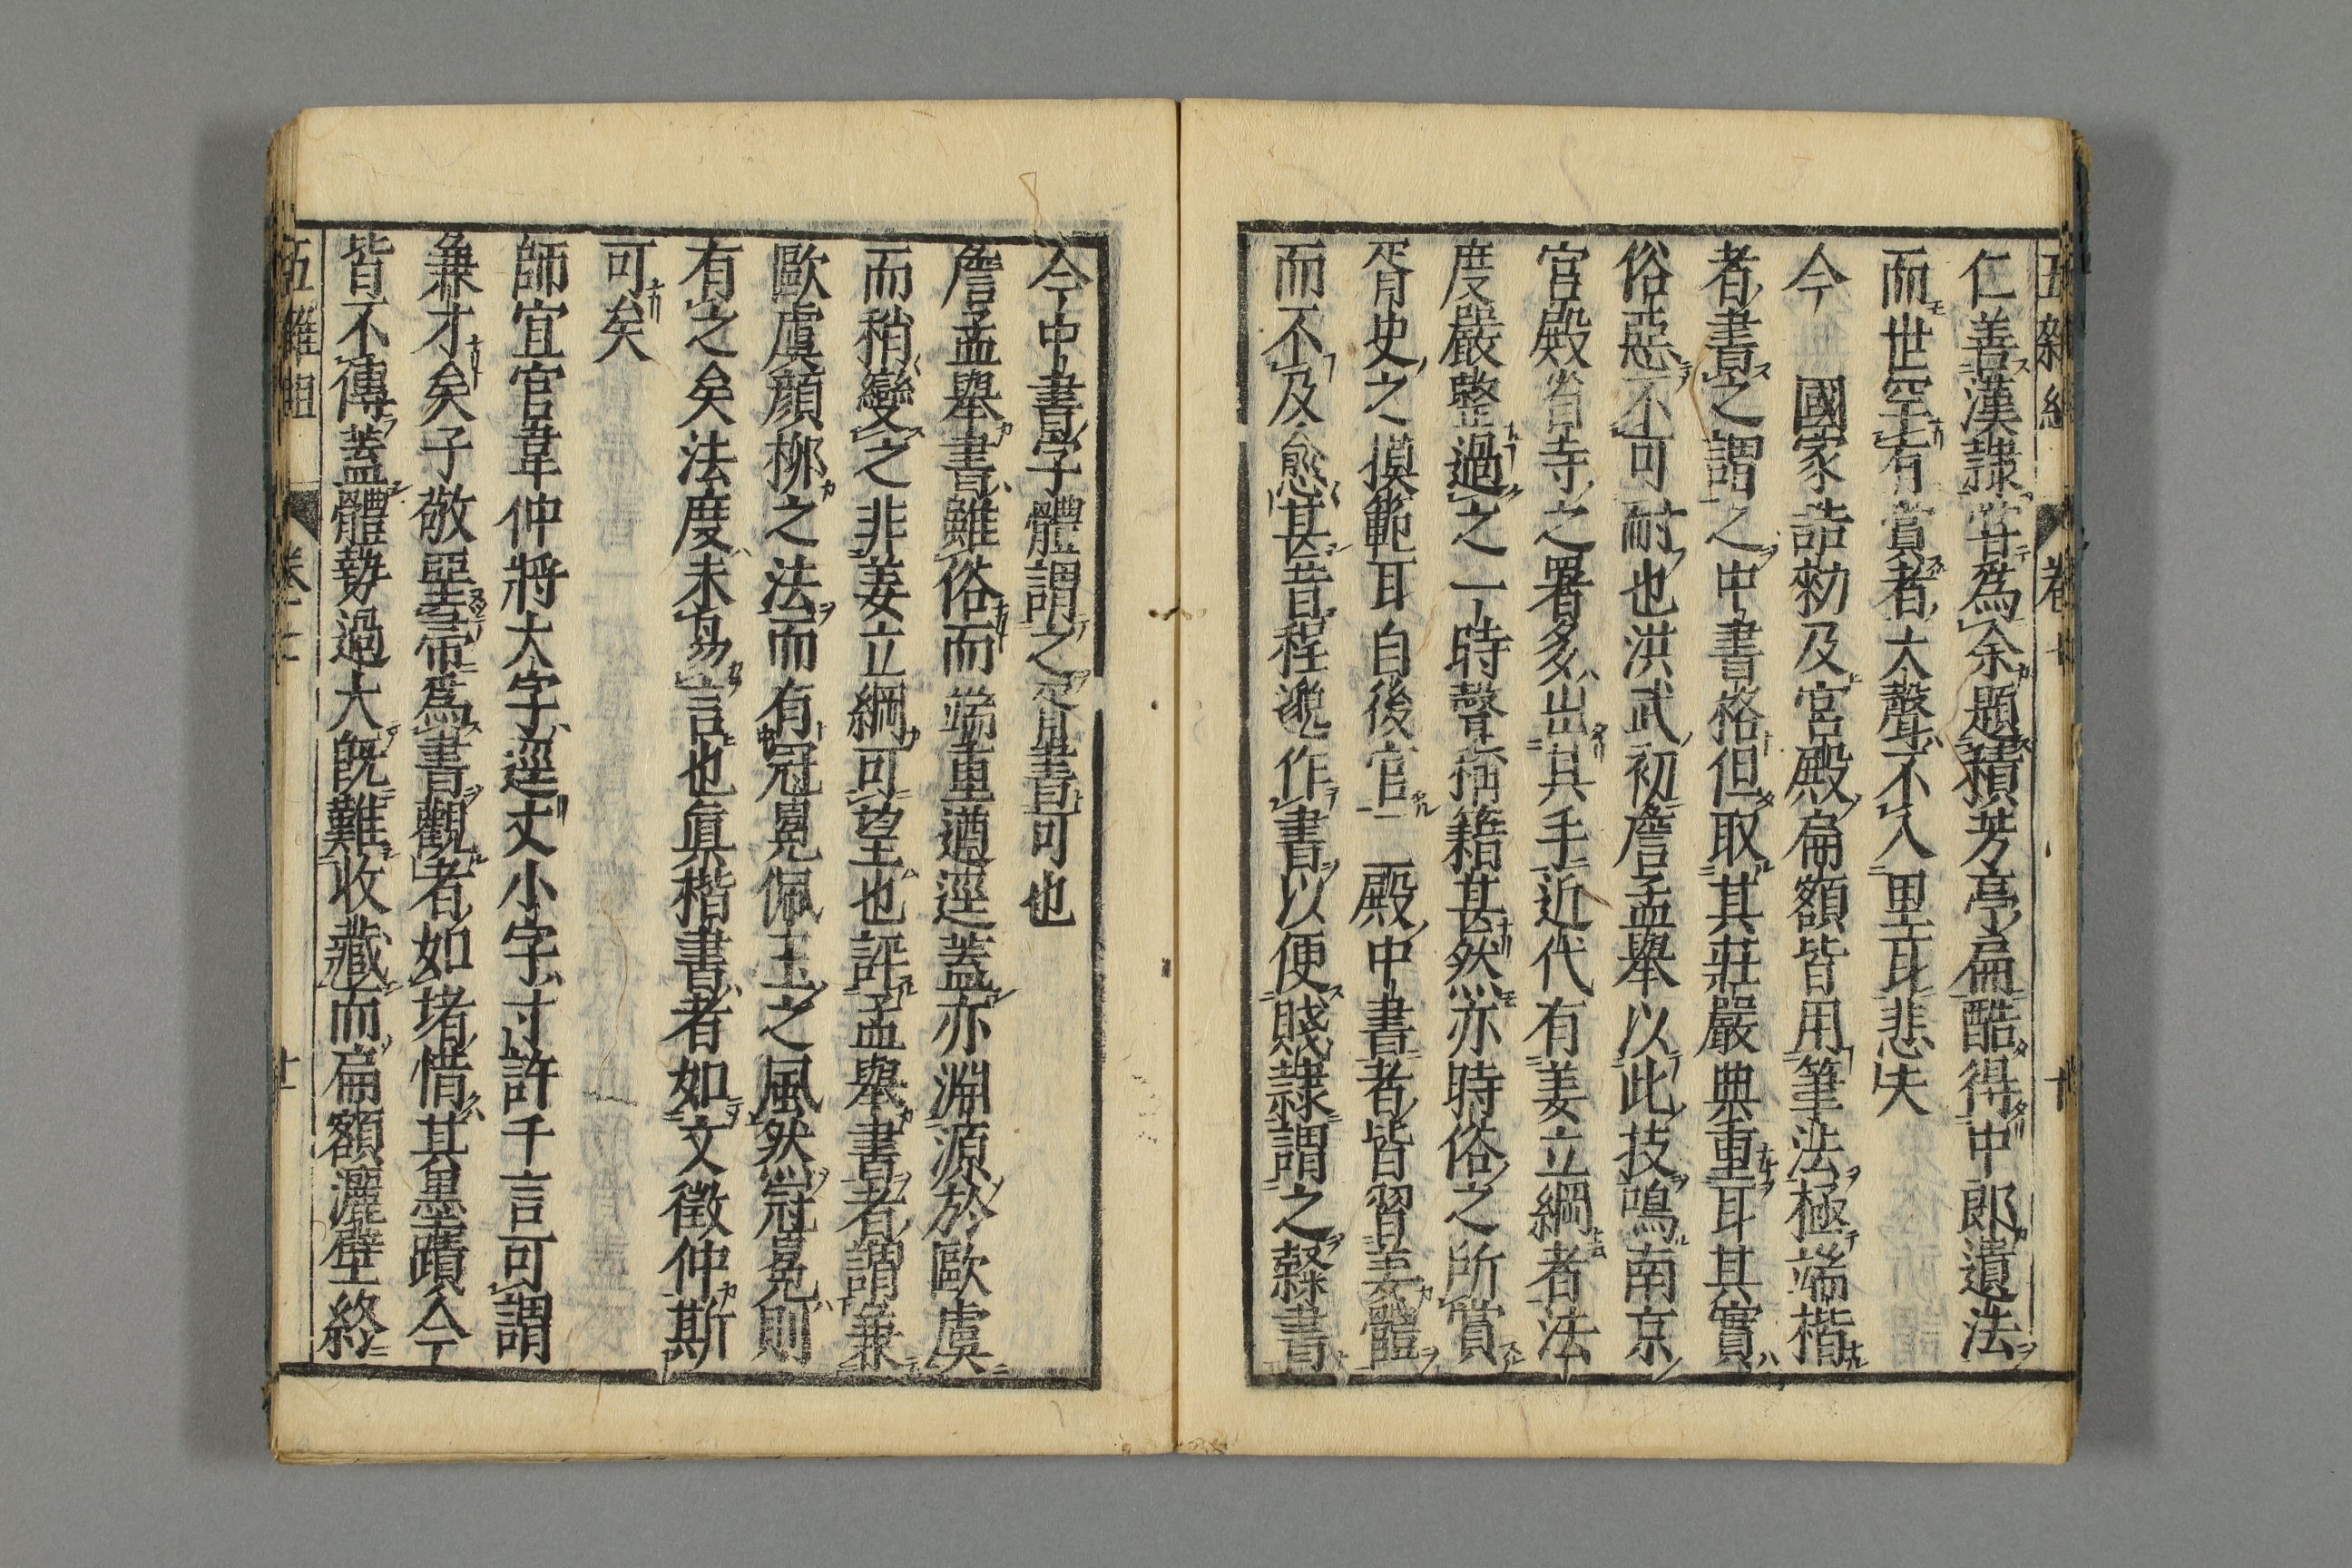 仁善漢隷甞爲余題積芳亭扁酷得中郎遺法
而世罕有賞者大聲不入里耳悲夫
今 國家誥勑及宮殿扁額皆用筆法極端楷
者書之謂之中書格但取其莊嚴典重耳其實
俗惡不可耐也洪武初詹孟舉以此技鳴南京
宮殿省寺之署多出其手近代有姜立綱者法
度嚴整過之一時聲稱籍甚然亦時俗之所賞
胥史之摸範耳自後官二殿中書者皆習姜體
而不及愈甚昔程邈作書以便賤隷謂之隸書
今中書字體謂之胥書可也
詹孟舉書雖俗而端重遒逕蓋亦淵源於歐虞
而稍變之非姜立綱可望也評孟舉書者謂兼
歐虞顔栁之法而有冠冕佩玉之風然冠冕則
有之矣法度未易言也眞楷書者如文徵仲斯
可矣
師宜官韋仲將大字逕丈小字寸許千言可謂
兼才矣子敬堊帚爲書觀者如堵惜其墨蹟今
皆不傳蓋體勢過大旣難收藏而扁額灑壁終
五雜組 卷十